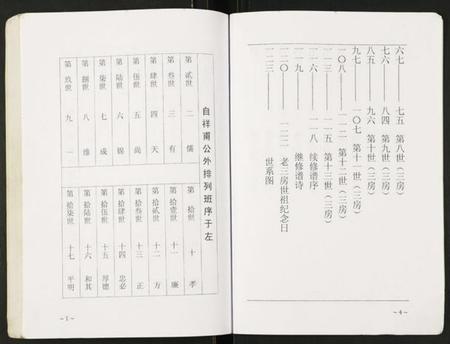 六七——七五 第八世(三房)
七六——八四 第九世(三房)
八五——九六 第十世(三房)
九七——一〇七 第十一世(三房)
一〇八——一一二 第十二世(三房)
一一三——一一五 第十三世(三房)
一一六——一一八 续修谱序
一一九 继修谱诗
一二〇——一二二 老三房世祖纪念日
一二三—— 世系图
~4~
自祥甫公外排列班序于左
第贰世 二 儒
第叁世 三 有
第肆世 四 天
第伍世 五 尚
第陆世 六 锦
第柒世 七 成
第捌世 八 维
第玖世 九 一
第拾世 十 孝
第拾壹世 十一 廉
第拾贰世 十二 方
第拾叁世 十三 正
第拾肆世 十四 忠必
第拾伍世 十五 厚德
第拾陆世 十六 和其
第拾柒世 十七 平明
~1~